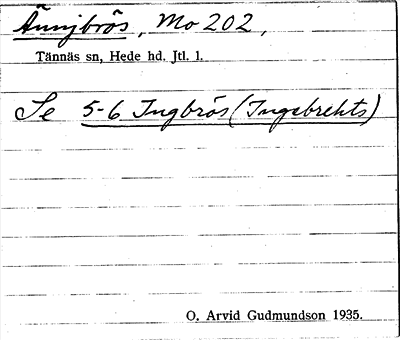 Ännjbrös, Mo 202,
Tännäs sn, Hede hd. Jtl. l.
Se 5-6 Ingbrös (Ingebrekts)
O. Arvid Gudmundson 1935.